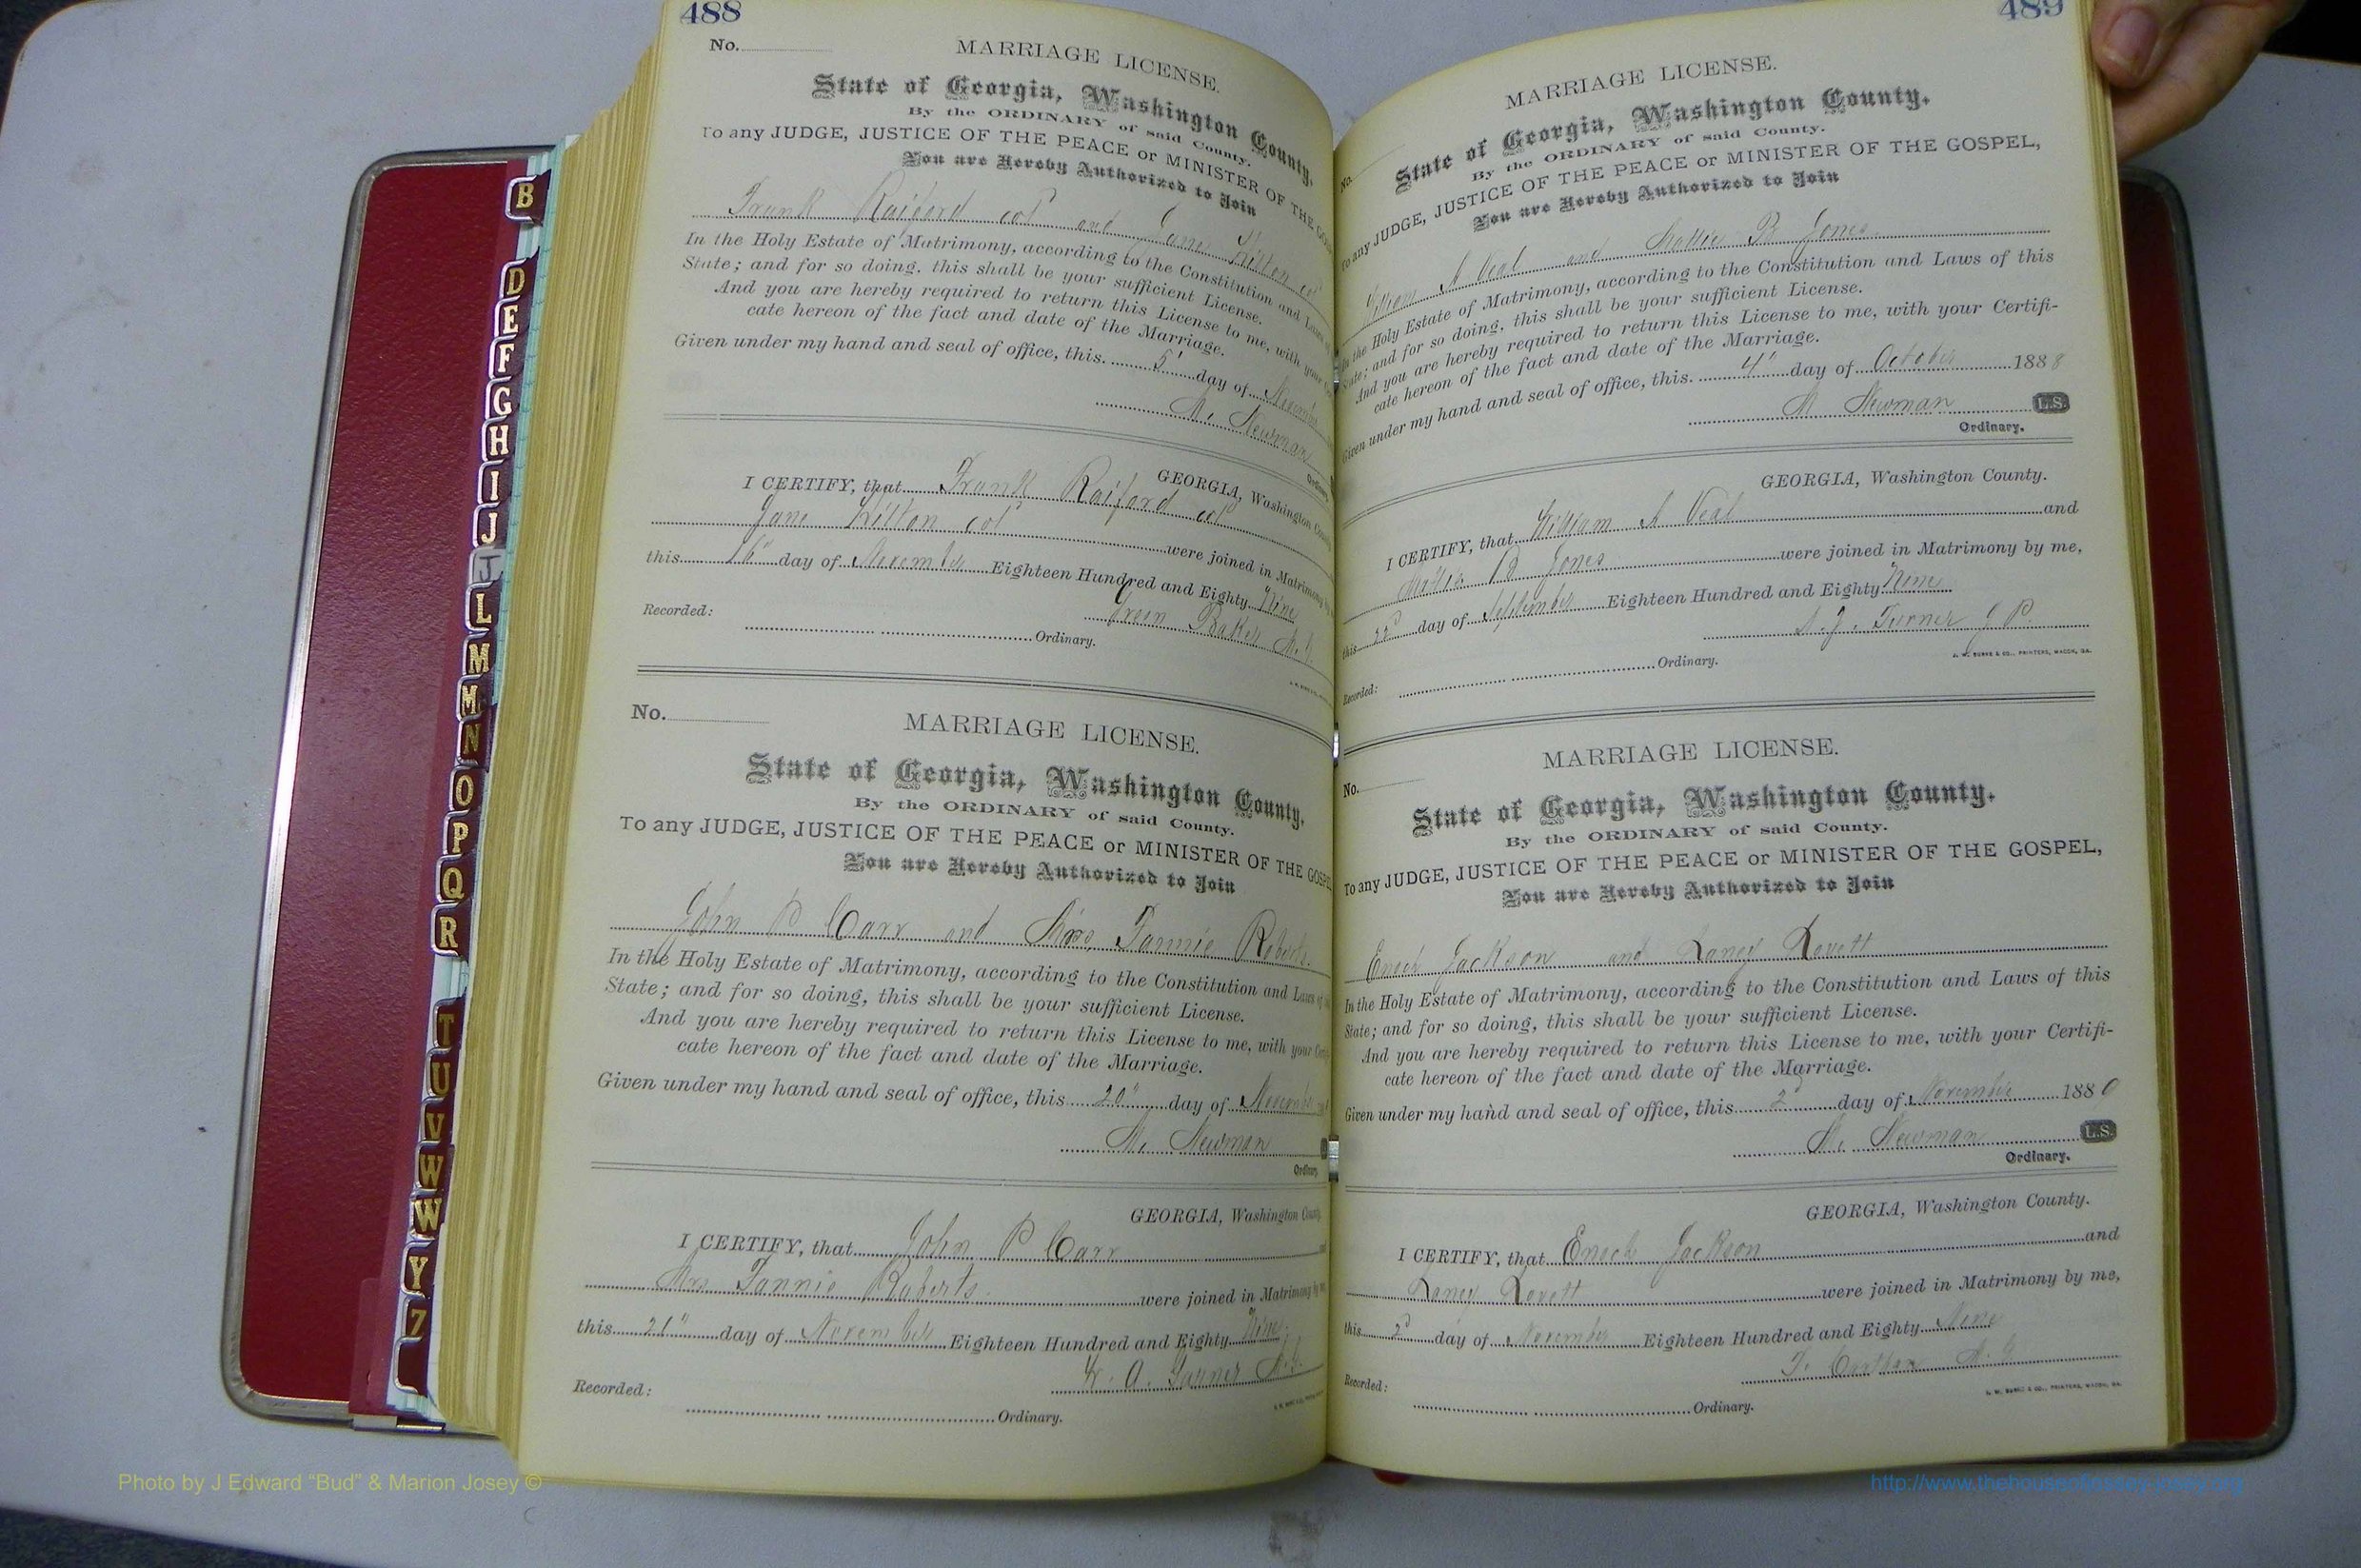 488
No.
MARRIAGE LICENSE.
State of Georgia, Washington County,
By the ORDINARY of said County.
To any JUDGE, JUSTICE OF THE PEACE or MINISTER OF THE GOS
You are Hereby Authorized to Join
Frank Raiford col and Jane Hilton col
In the Holy Estate of Matrimony, according to the Constitution and Laws of
State; and for so doing, this shall be your sufficient License.
And you are hereby required to return this License to me, with your
cate hereon of the fact and date of the Marriage.
Given under my hand and seal of office, this 5" day of November
M. Newman
Ordinary.
GEORGIA, Washington County
I CERTIFY, that Frank Raiford col
Jane Hilton col were joined in Matrimony by
this 16" day of November Eighteen Hundred and Eighty Nine
Green Baker M.G.
Recorded:
Ordinary.
No.
MARRIAGE LICENSE.
State of Georgia, Washington County,
By the ORDINARY of said County.
To any JUDGE, JUSTICE OF THE PEACE or MINISTER OF THE GOSPE
You are Hereby Authorized to Join
John P Carr and Mrs Fannie Roberts.
In the Holy Estate of Matrimony, according to the Constitution and Laws of
State; and for so doing, this shall be your sufficient License.
And you are hereby required to return this License to me, with your
cate hereon of the fact and date of the Marriage.
Given under my hand and seal of office, this 20" day of November
M. Newman
Ordinary
GEORGIA, Washington County
I CERTIFY, that John P Carr
Mrs Fannie Roberts. were joined in Matrimony by
this 21" day of November Eighteen Hundred and Eighty Nine
A. Turner M.G.
Recorded:
Ordinary.
489
No.
MARRIAGE LICENSE.
State of Georgia, Washington County,
By the ORDINARY of said County.
To any JUDGE, JUSTICE OF THE PEACE or MINISTER OF THE GOSPEL,
You are Hereby Authorized to Join
William A Veal and Mollie B Jones
In the Holy Estate of Matrimony, according to the Constitution and Laws of this
State; and for so doing, this shall be your sufficient License.
And you are hereby required to return this License to me, with your Certifi-
cate hereon of the fact and date of the Marriage.
Given under my hand and seal of office, this 4" day of October 1888
M Newman L.S.
Ordinary.
GEORGIA, Washington County.
I CERTIFY, that William A Veal and
Mollie B Jones were joined in Matrimony by me,
this 22d day of September Eighteen Hundred and Eighty Nine
Turner J P.
J. W. BURKE & CO., PRINTERS, MACON, GA.
Recorded:
Ordinary.
No.
MARRIAGE LICENSE.
State of Georgia, Washington County.
By the ORDINARY of said County.
To any JUDGE, JUSTICE OF THE PEACE or MINISTER OF THE GOSPEL,
You are Hereby Authorized to Join
Enoch Jackson and Laney Lovett
In the Holy Estate of Matrimony, according to the Constitution and Laws of this
State; and for so doing, this shall be your sufficient License.
And you are hereby required to return this License to me, with your Certifi-
cate hereon of the fact and date of the Marriage.
Given under my hand and seal of office, this 2d day of November 1880
M. Newman L.S.
Ordinary.
GEORGIA, Washington County.
I CERTIFY, that Enoch Jackson and
Laney Lovett were joined in Matrimony by me,
this 2d day of November Eighteen Hundred and Eighty Nine
M. G
J. W. BURKE & CO., PRINTERS, MACON, GA.
Recorded:
Ordinary.
B
D
E
F
G
H
I
J
J
L
M
M
N
O
P
Q
R
T
U
V
W
W
Y
Z
Photo by J Edward “Bud” & Marion Josey ©